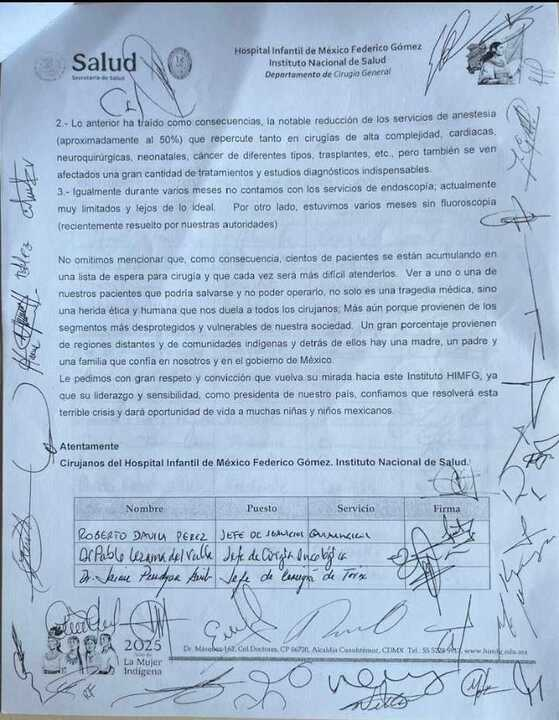 Salud
Secretaría de Salud
Hospital Infantil de México Federico Gómez
Instituto Nacional de Salud
Departamento de Cirugía General
2.- Lo anterior ha traído como consecuencias, la notable reducción de los servicios de anestesia
(aproximadamente al 50%) que repercute tanto en cirugías de alta complejidad, cardiacas,
neuroquirúrgicas, neonatales, cáncer de diferentes tipos, trasplantes, etc., pero también se ven
afectados una gran cantidad de tratamientos y estudios diagnósticos indispensables.
3.- Igualmente durante varios meses no contamos con los servicios de endoscopía; actualmente
muy limitados y lejos de lo ideal. Por otro lado, estuvimos varios meses sin fluoroscopia
(recientemente resuelto por nuestras autoridades)
No omitimos mencionar que, como consecuencia, cientos de pacientes se están acumulando en
una lista de espera para cirugía y que cada vez será más difícil atenderlos. Ver a uno o una de
nuestros pacientes que podría salvarse y no poder operarlo, no solo es una tragedia médica, sino
una herida ética y humana que nos duela a todos los cirujanos; Más aún porque provienen de los
segmentos más desprotegidos y vulnerables de nuestra sociedad. Un gran porcentaje provienen
de regiones distantes y de comunidades indígenas y detrás de ellos hay una madre, un padre y
una familia que confía en nosotros y en el gobierno de México.
Le pedimos con gran respeto y convicción que vuelva su mirada hacia este Instituto HIMFG, ya
que su liderazgo y sensibilidad, como presidenta de nuestro país, confiamos que resolverá esta
terrible crisis y dará oportunidad de vida a muchas niñas y niños mexicanos.
Atentamente
Cirujanos del Hospital Infantil de México Federico Gómez. Instituto Nacional de Salud.
Nombre Puesto Servicio Firma
ROBERTO DAVILA PEREZ JEFE DE SERVICIOS
Dr Pablo Lezama del Valle Jefe de Cirugía Oncológica
Dr. Jaime Jefe de Cirugía de Torax
2025
Año de
La Mujer
Indígena
Dr. Márquez 162, Col Doctores, CP 06720, Alcaldía Cuauhtémoc, CDMX Tel. 55 5228 9917 www.himfg.edu.mx